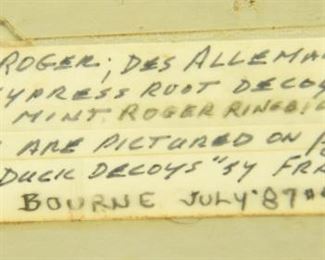 ROGER; DES ALLEMA
YPRESS ROOT DECOY
MINT. ROGER
ARE PICTURED ON
DUCK DECOYS" BY FRA
BOURNE JULY '87